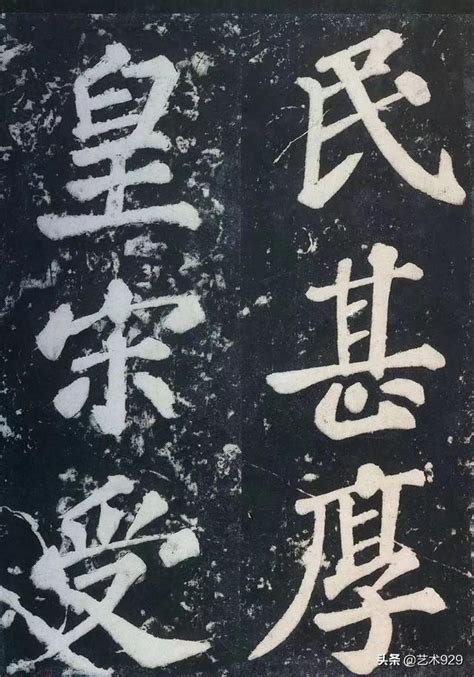 民甚厚
皇宋受
头条 @艺术929